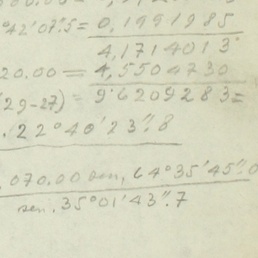 °42'07".5 = 0,1991985
4,1714013
20.00 = 4,5504730
(29-27) = 9.6209283 =
. 22°40'23".8
,070.00 sen, 64°35'45".0
sen. 35°01'43".7